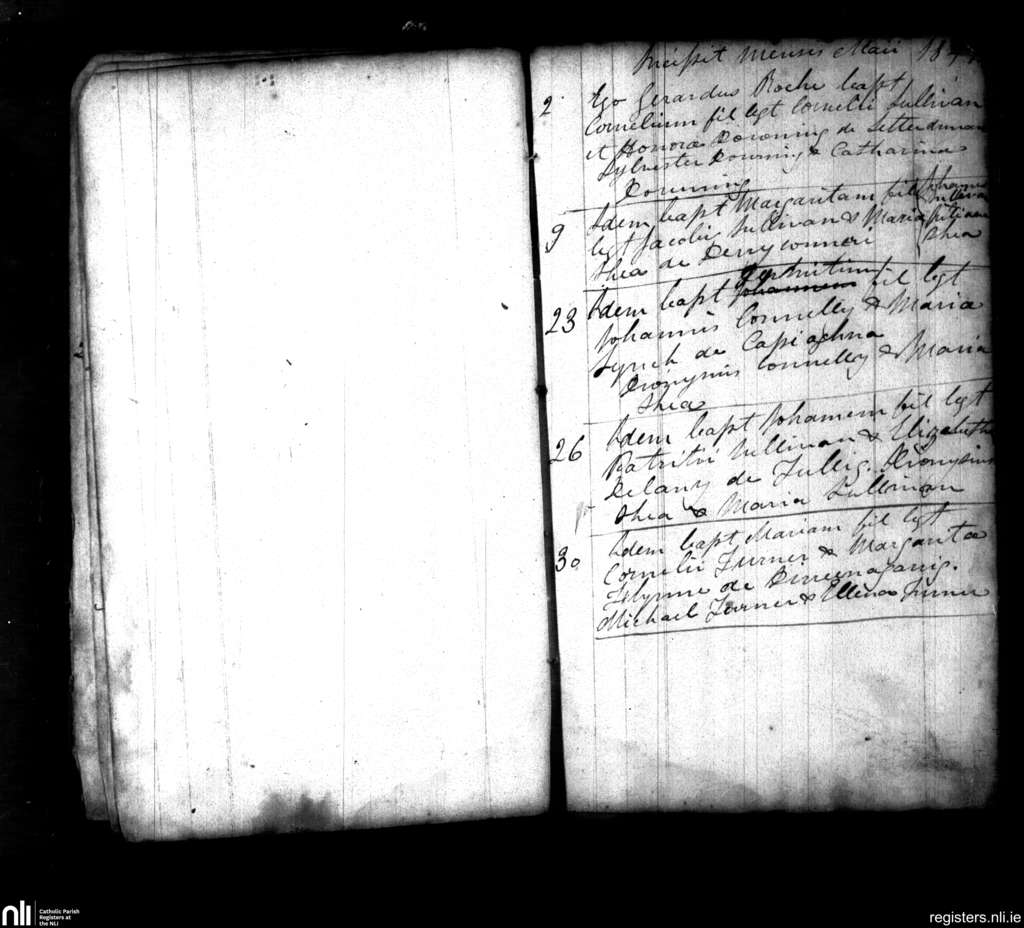 Incipit Mensis Maii 18
2 Ego Gerardus Roche bapt
Cornelium fil legt Cornelii Sullivan
et Honora Downing de Letterdunan
Sylvester Downing & Catharina
Downing
9 Idem bapt Margaritam fil Johannes
legt Jacobi Sullivan & Maria Sullivan
Shea de Derryconneri Shea
23 Idem bapt Johannem fil legt
Johannis Connelly & Maria
Lynch de Capiaghna
Dionysius Connelly & Maria
Shea
26 Idem bapt Johamem fil legt
Patritii Sullivan & Elizabetha
Delany de Tullig. Dionysius
Shea & Maria Sullivan
30 Idem bapt Mariam fil legt
Cornelii Turner & Margarita
Flynne de
Michael Turner & Ellena Turner
nli
Catholic Parish
Registers at
the NLI
registers.nli.ie